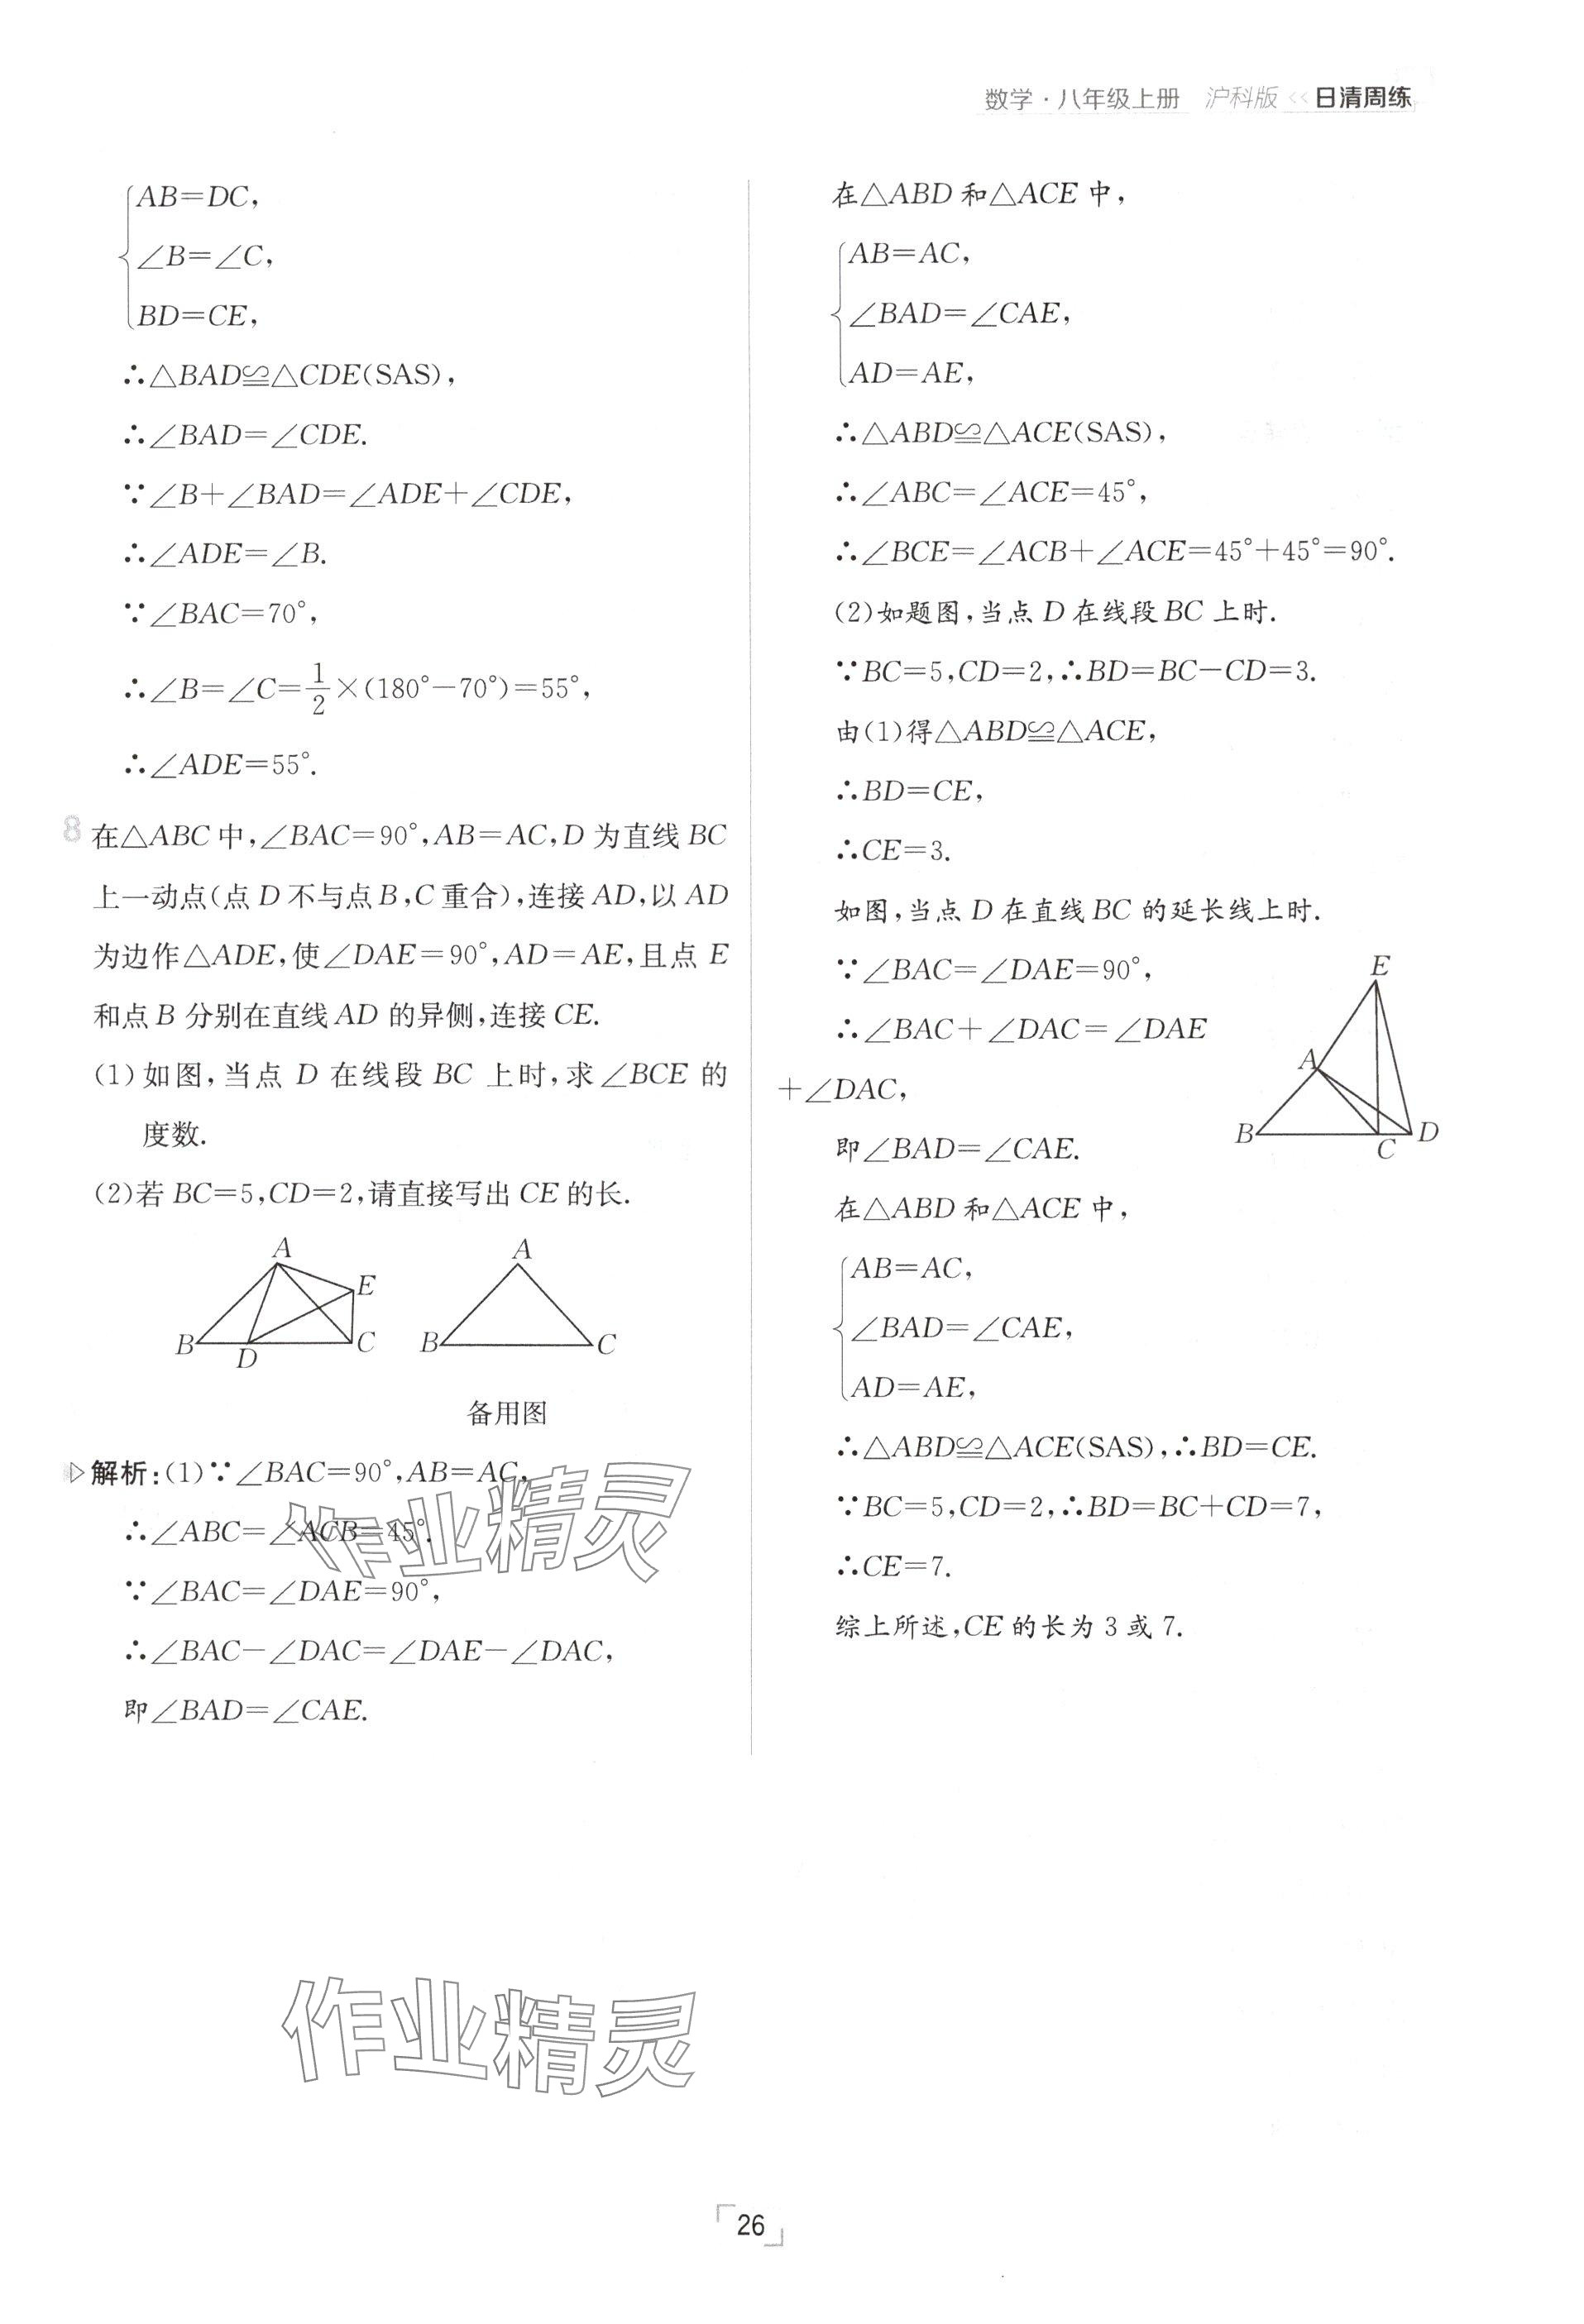 数学·八年级上册 沪科版 << 日清周练
AB=DC,
∠B=∠C,
BD=CE,
∴△BAD≌△CDE(SAS),
∴∠BAD=∠CDE.
∵∠B+∠BAD=∠ADE+∠CDE,
∴∠ADE=∠B.
∵∠BAC=70°,
∴∠B=∠C=1/2×(180°-70°)=55°,
∴∠ADE=55°.
8 在△ABC中,∠BAC=90°,AB=AC,D为直线BC
上一动点(点D不与点B,C重合),连接AD,以AD
为边作△ADE,使∠DAE=90°,AD=AE,且点E
和点B分别在直线AD的异侧,连接CE.
(1)如图,当点D在线段BC上时,求∠BCE的
度数.
(2)若BC=5,CD=2,请直接写出CE的长.
A
E
B
D
C
A
B
C
备用图
解析:(1)∵∠BAC=90°,AB=AC,
∴∠ABC=∠ACB=45°.
∵∠BAC=∠DAE=90°,
∴∠BAC-∠DAC=∠DAE-∠DAC,
即∠BAD=∠CAE.
作业精灵
作业精灵
在△ABD和△ACE中,
AB=AC,
∠BAD=∠CAE,
AD=AE,
∴△ABD≌△ACE(SAS),
∴∠ABC=∠ACE=45°,
∴∠BCE=∠ACB+∠ACE=45°+45°=90°.
(2)如题图,当点D在线段BC上时.
∵BC=5,CD=2,∴BD=BC-CD=3.
由(1)得△ABD≌△ACE,
∴BD=CE,
∴CE=3.
如图,当点D在直线BC的延长线上时.
∵∠BAC=∠DAE=90°,
∴∠BAC+∠DAC=∠DAE
+∠DAC,
即∠BAD=∠CAE.
E
A
B
C
D
在△ABD和△ACE中,
AB=AC,
∠BAD=∠CAE,
AD=AE,
∴△ABD≌△ACE(SAS),∴BD=CE.
∵BC=5,CD=2,∴BD=BC+CD=7,
∴CE=7.
综上所述,CE的长为3或7.
26